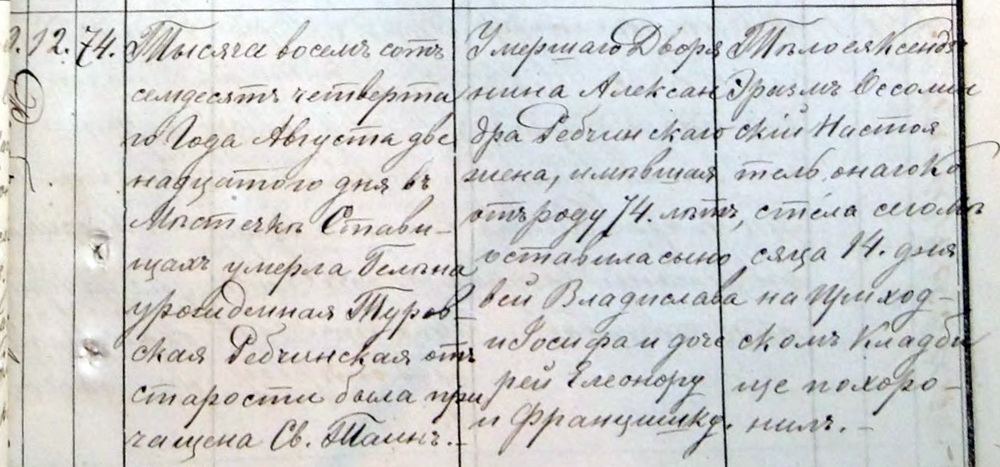 12. 74.
Тысяча восемъ сотъ
семдесятъ четверта
го Года Августа две
надцатого дня въ
Мѣстечкѣ Стави-
щахъ умерла Гелена
урожденная Туров
ская Ребчинская отъ
старости была при
чащена Св. Таинъ.-
Умершаго Дворя
нина Алексан
дра Ребчинскаго
жена, имѣвшая
отъ роду 74. лѣтъ,
оставила сыно
вей Владислава
и Іосифа и доче
рей Елеонору
и Францишку.
Тѣло ея Ксендзъ
Эразмъ Оссолин
скій Настоя
тель онаго Ко
стела сего мѣ
сяца 14. дня
на приход-
скомъ Кладби
ще похоро-
нилъ.-